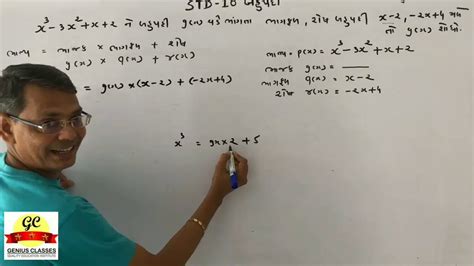 STD-10 બહુપદી
x³-3x²+x+2 ને બહુપદી g(x) વડે ભાગતા ભાગફળ, શેષ બહુપદી x-2, -2x+4 મળે
તો g(x) શોધો.
ભાજ્ય = ભાજક × ભાગફળ + શેષ
g(x) × q(x) + r(x)
= g(x) × (x-2) + (-2x+4)
ભાજ્ય = p(x) = x³-3x²+x+2
ભાજક g(x) =
ભાગફળ q(x) = x-2
શેષ r(x) = -2x+4
x³ = 9x×2+5
GC
GENIUS CLASSES
QUALITY EDUCATION INSTITUTE